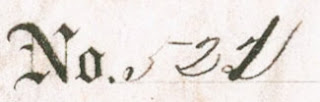 No. 521